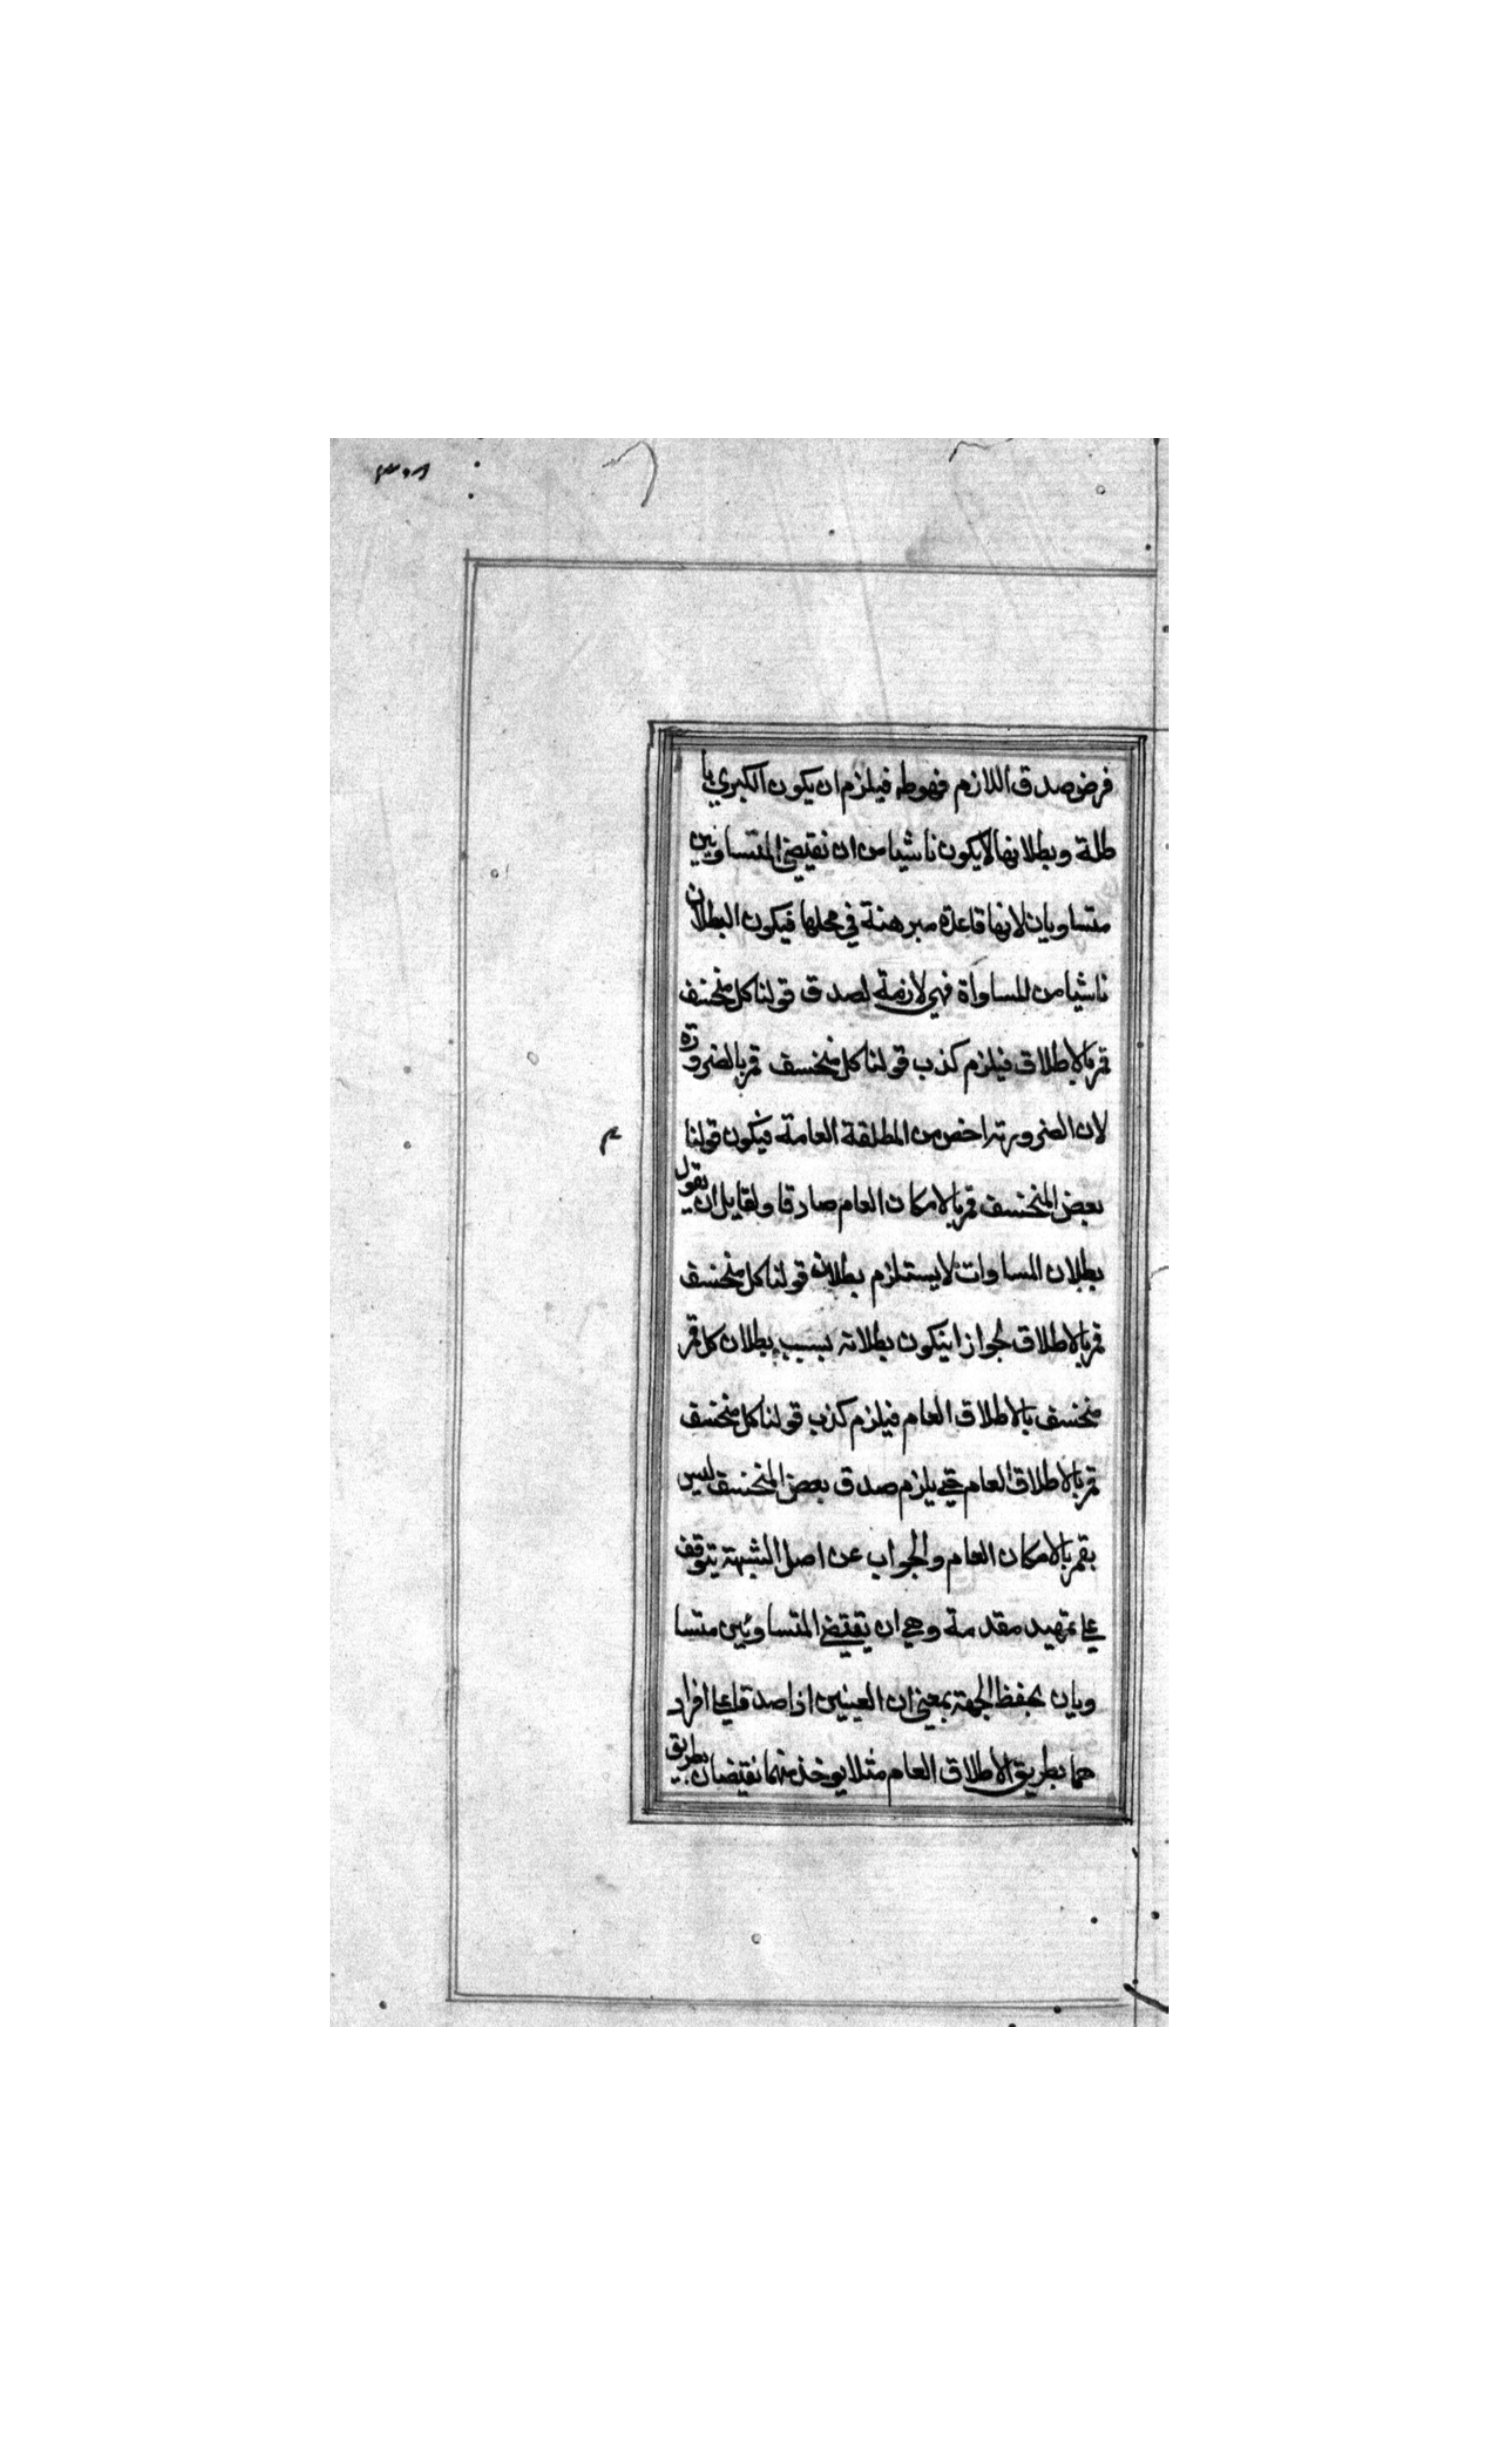 فرض صدق اللازم فهوطه فيلزم ان يكون الكبري با
طلة وبطلانها لايكون ناشيا من ان نقيضي المتساويين
متساويان لانها قاعدة مبرهنة في محلها فيكون البطلان
ناشيا من المساواة فهي لازمة لصدق قولنا كل منخسف
قمر بالاطلاق فيلزم كذب قولنا كل منخسف قمر بالضرورة
لان الضرورية اخص من المطلقة العامة فيكون قولنا
بعض المنخسف قمر بالامكان العام صادقا ولقايل ان يقول
بطلان المساوات لايستلزم بطلان قولنا كل منخسف
قمر بالاطلاق لجواز ان يكون بطلانه بسبب بطلان كل قمر
منخسف بالاطلاق العام فيلزم كذب قولنا كل منخسف
قمر بالاطلاق العام حتي يلزم صدق بعض المنخسف ليس
بقمر بالامكان العام والجواب عن اصل الشبهة يتوقف
علي تمهيد مقدمة وهي ان نقيضي المتساويين متسا
ويان بحفظ الجهة بمعني ان العينين اذا صدقا علي افراد
هما بطريق الاطلاق العام مثلا يوخذ منهما نقيضان بطريق